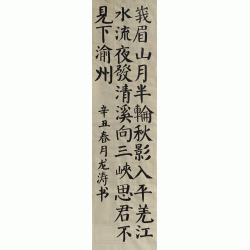 峩眉山月半輪秋影入平羌江
水流夜發清溪向三峽思君不
見下渝州
辛丑春月龙涛书